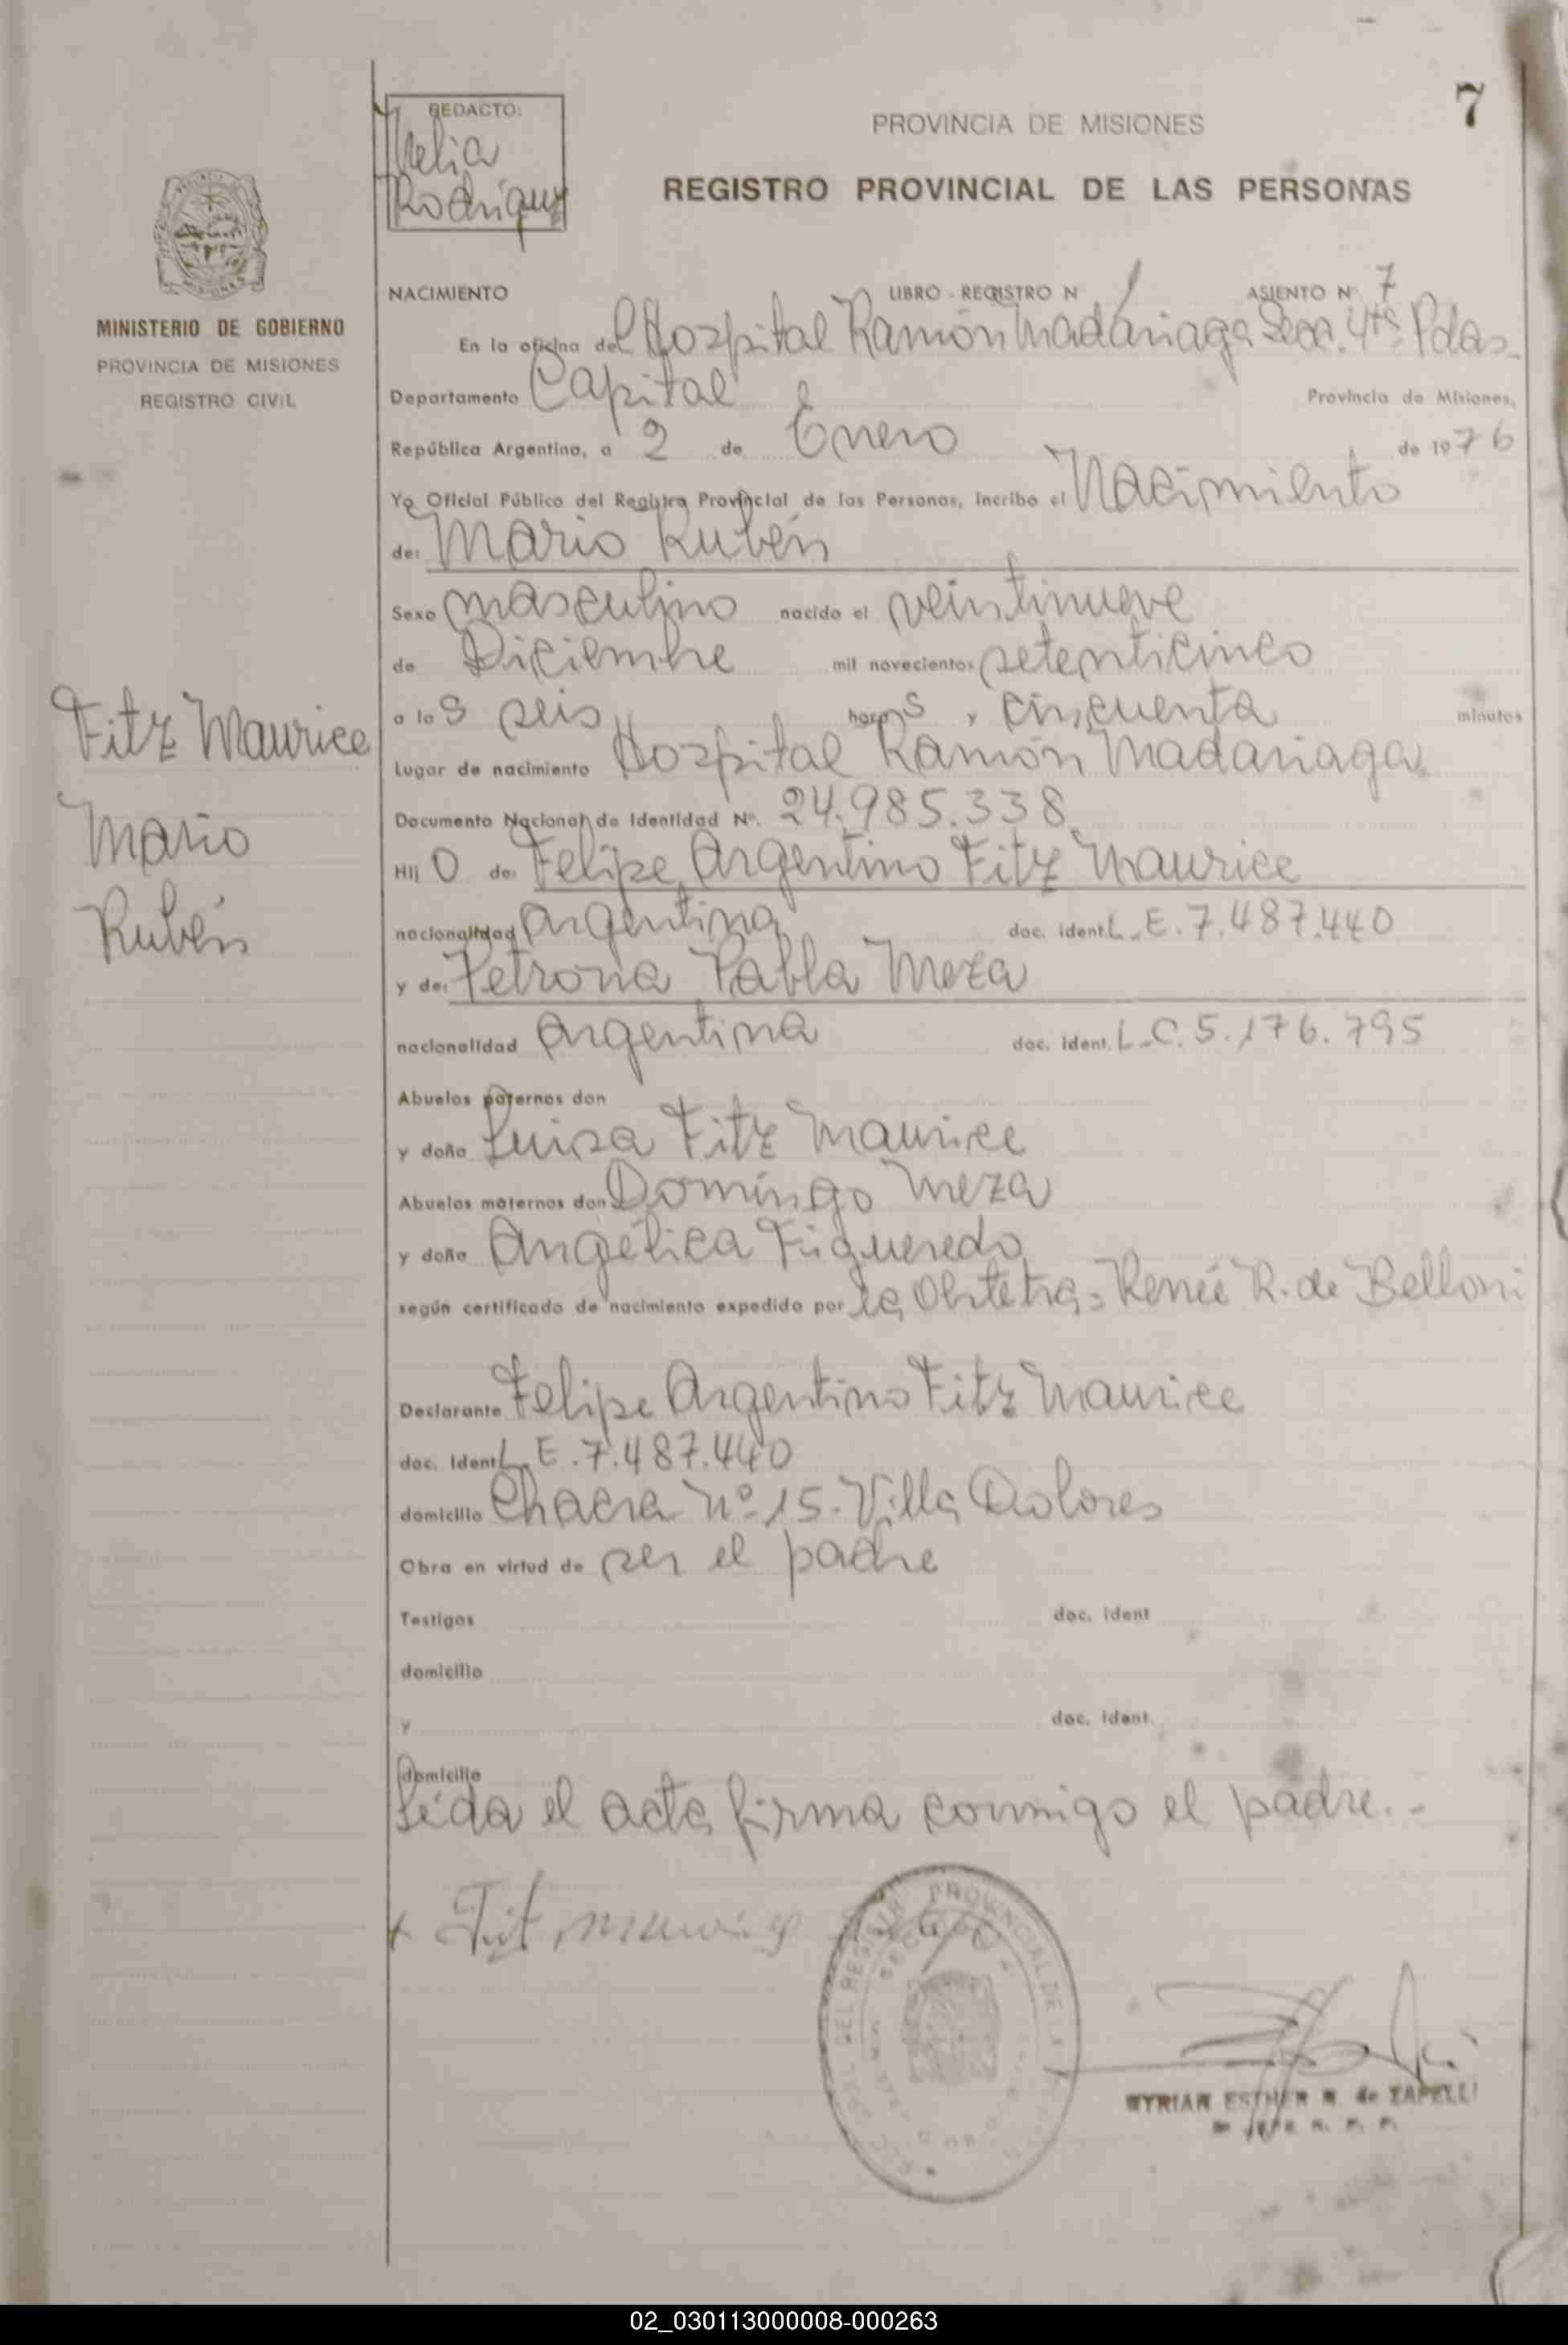 7
REDACTO:
Rodríguez
PROVINCIA DE MISIONES
REGISTRO PROVINCIAL DE LAS PERSONAS
MISIONES
MINISTERIO DE GOBIERNO
PROVINCIA DE MISIONES
REGISTRO CIVIL
NACIMIENTO LIBRO - REGISTRO N 1 ASIENTO Nº 7
En la oficina del Hospital Ramón Madariaga Secc. 4ta. Pdas-
Departamento Capital Provincia de Misiones,
República Argentina, a 2 de Enero de 1976
Yo Oficial Público del Registro Provincial de las Personas, incribo el Nacimiento
de: Mario Rubén
Sexo masculino nacido el veintinueve
de Diciembre mil novecientos setenticinco
a las seis horas, cincuenta minutos
Fitz Maurice
Mario
Rubén
Lugar de nacimiento Hospital Ramón Madariaga
Documento Nacional de Identidad Nº. 24.985.338
Hijo de: Felipe Argentino Fitz Maurice
nacionalidad Argentina doc. ident. L.E. 7.487.440
y de: Petrona Pabla Meza
nacionalidad Argentina doc. ident. L.C. 5.176.795
Abuelos paternos don
y doña Luisa Fitz Maurice
Abuelos maternos don Domingo Meza
y doña Angélica Figueredo
según certificado de nacimiento expedido por la Obstetra: Renée R. de Belloni
Declarante Felipe Argentino Fitz Maurice
doc. Ident L.E. 7.487.440
domicilio Chacra Nº 15-Villa Dolores
Obra en virtud de ser el padre
Testigos doc. ident
domicilio
y doc. Ident.
domicilio
Leída el acta firma conmigo el padre.-
PROVINCIAL DE LA
DEL REGISTRO
MYRIAN ESTHER N. de ZAPELLI
02_030113000008-000263